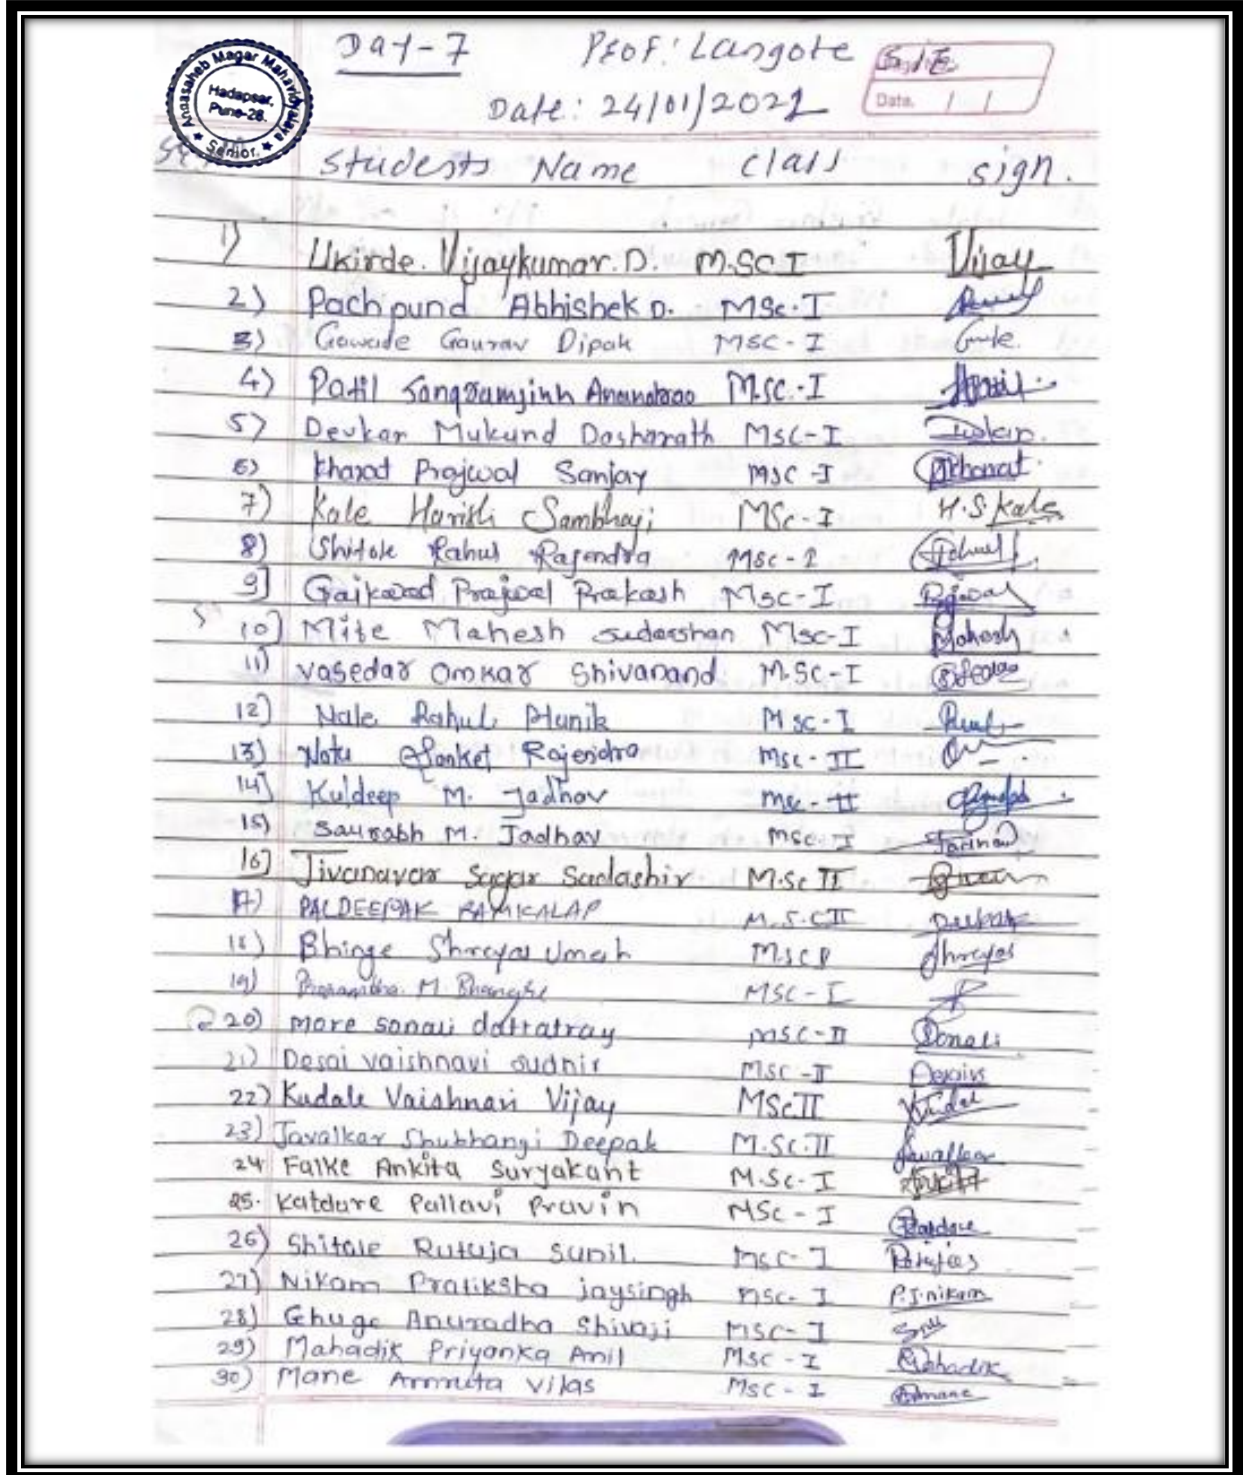 Annasaheb Magar Mahavidyalaya
Hadapsar,
Pune-28.
★ Senior. ★
Day-7 Prof: Langote
Date: 24/01/2021
Date. / /
Students Name Class sign.
1) Ukirde. Vijaykumar. D. M.SC I Vijay
2) Pachpund Abhishek D. MSc.I
3) Gawade Gaurav Dipak MSC-I
4) Patil Sangramjinh Anandrao M.SC.-I
5) Devkar Mukund Dasharath MSC-I
6) Kharat Prajwal Sanjay MSC-I Kharat
7) Kale Harish Sambhaji MSc-I H.S.Kale
8) Shitole Rahul Rajendra MSc-I
9] Gaikwad Prajwal Prakash MSC-I
10] Mite Mahesh sudarshan MSC-I Mahesh
11) Vasedar Omkar Shivanand M.SC-I
12] Nale Rahul M SC-I
13) Sanket Rajendra MSC-II
14] Kuldeep M. Jadhav MSC-II
15) Saurabh M. Jadhav MSC-I Jadhav
16] Jivanavar Sagar Sadashiv M.Sc II
17) PAL DEEPAK RAMKALAP M.S.C II Deepak
18) Bhinge Shreyas Umesh M.SC Shreyas
19) M MSC-I
20) More sonali dattatray MSC-II Sonali
21) Desai vaishnavi sudhir MSC-II
22) Kudale Vaishnavi Vijay MSc II
23) Javalkar Shubhangi Deepak M.SC.II Javalkar
24 Falke Ankita Suryakant M.Sc.-I Ankita
25. Katdare Pallavi Pravin MSC-I
26) Shitole Rutuja Sunil. MSC-I
27) Nikam Pratiksha jaysingh MSC-I P.J.nikam
28) Ghuge Anuradha Shivaji MSC-I
29) Mahadik Priyanka Anil MSC-I Mahadik
30) Mane Amruta Vilas MSC-I Amane